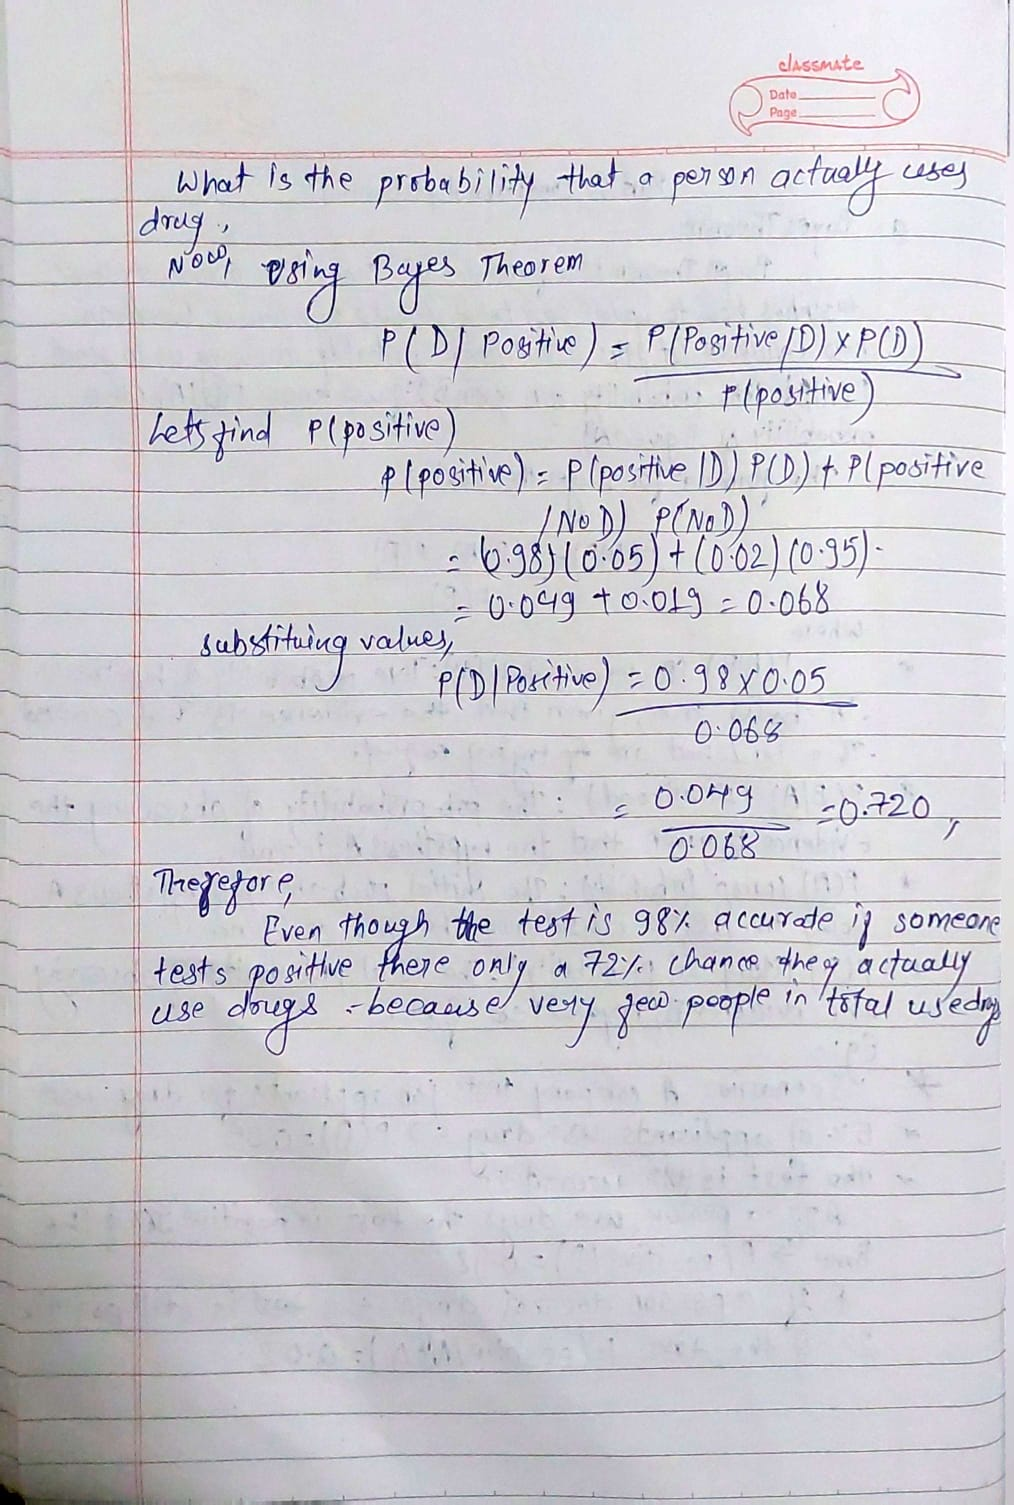 classmate
Date
Page
What is the probability that a person actually uses
drug,
Now, Using Bayes Theorem
P(D/Positive) = P(Positive/D) x P(D)
P(positive)
Lets find P(positive)
P(positive) = P(positive|D) P(D) + P(positive
/NoD) P(NoD)
= (0.98)(0.05) + (0.02)(0.95).
= 0.049 + 0.019 = 0.068
substituing values,
P(D|Positive) = 0.98 x 0.05
0.068
= 0.049 = 0.720,
0.068
Therefore,
Even though the test is 98% accurate if someone
tests positive there only a 72% chance they actually
use drugs - because very few people in total use drugs